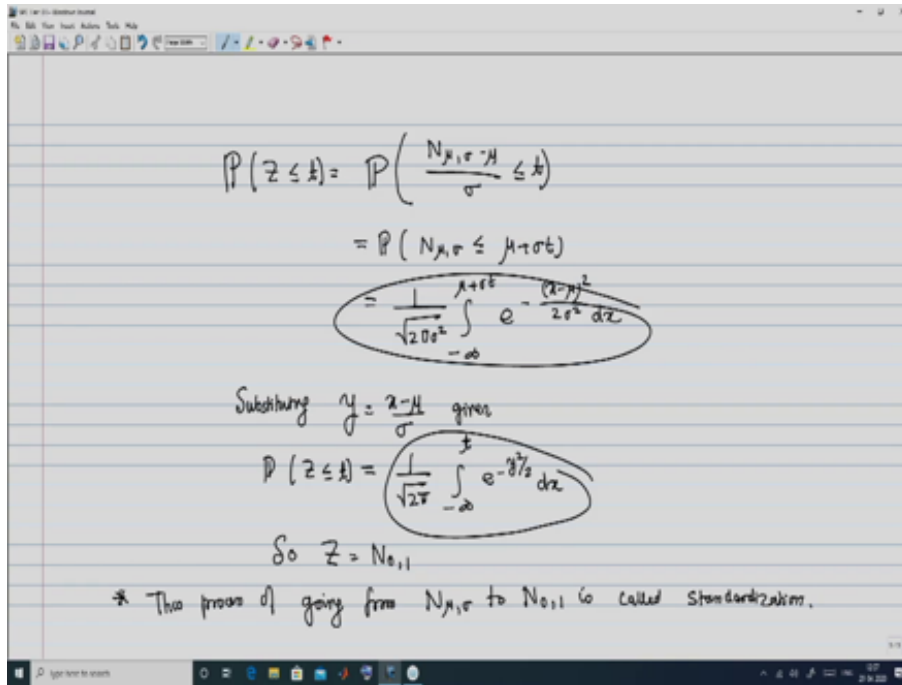 File Edit View Insert Actions Tools Help
ℙ(Z ≤ t) = ℙ( (N_{μ,σ} - μ)/σ ≤ t)
= ℙ( N_{μ,σ} ≤ μ+σt)
= 1/√(2πσ²) ∫_{-∞}^{μ+σt} e^{-(x-μ)²/2σ²} dx
Substituting y = (x-μ)/σ gives
ℙ(Z ≤ t) = 1/√(2π) ∫_{-∞}^{t} e^{-y²/2} dx
So Z = N_{0,1}
* This process of going from N_{μ,σ} to N_{0,1} is called standardization.
Type here to search